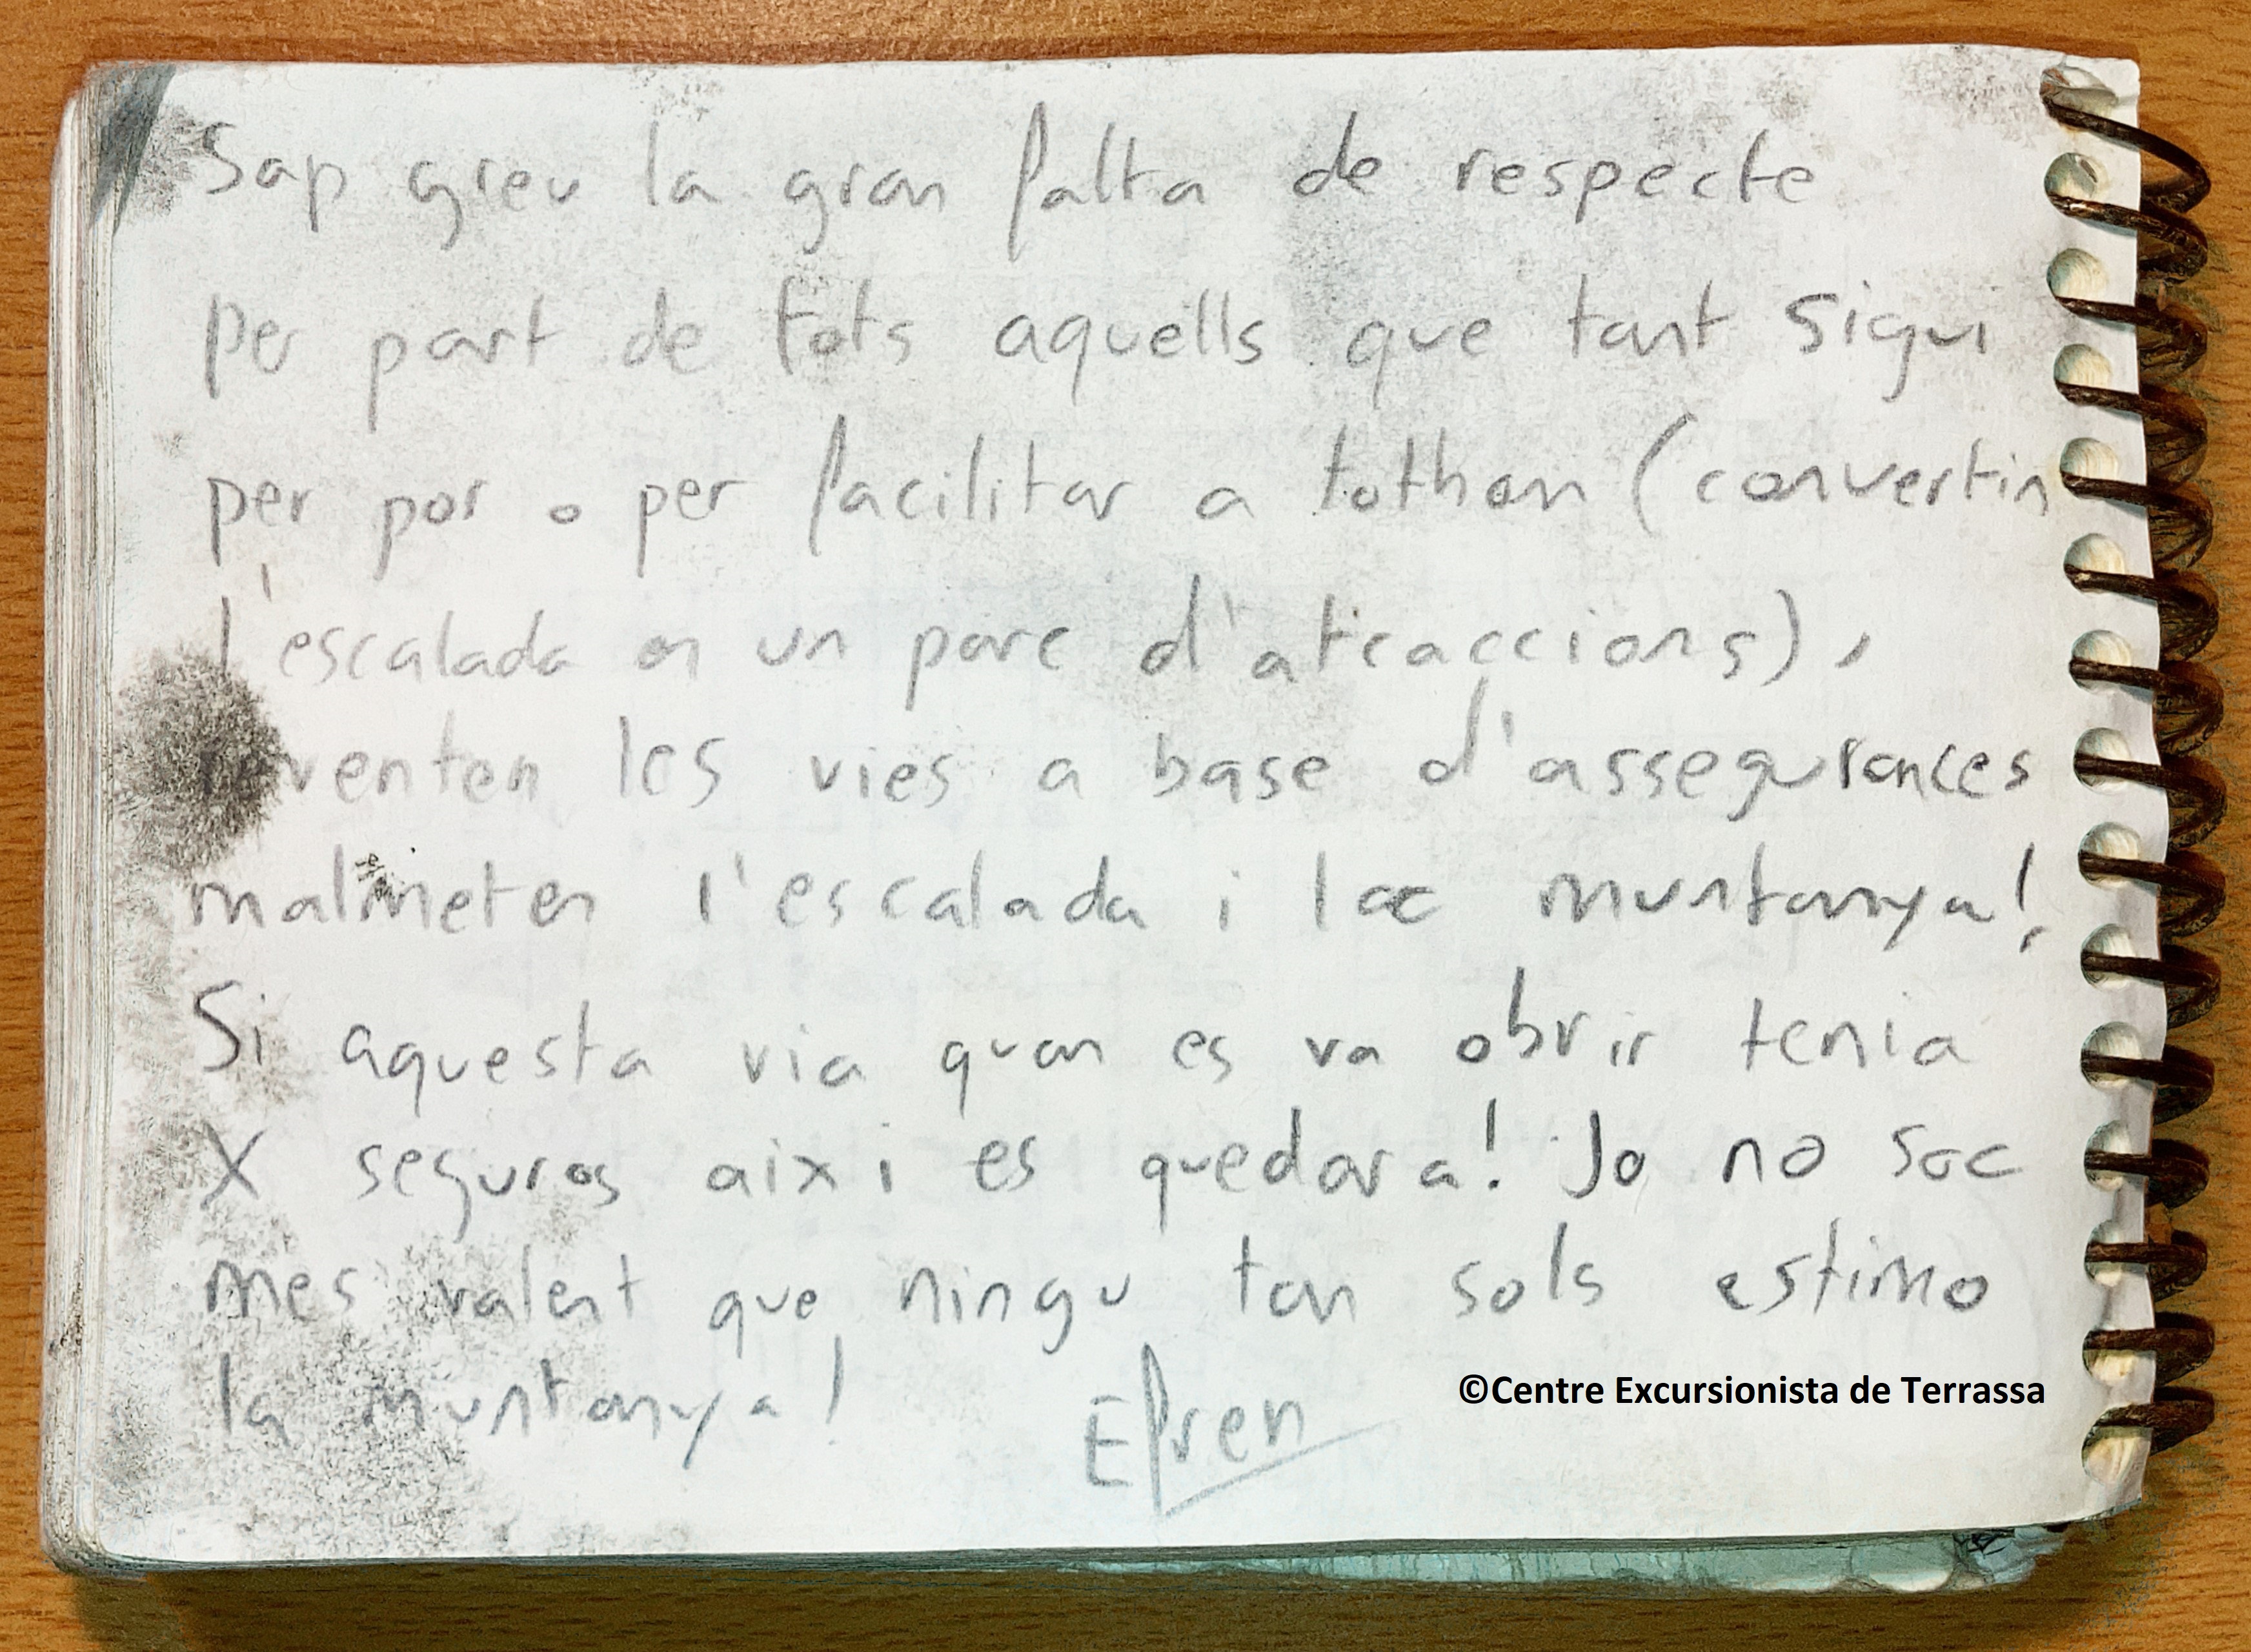 Sap greu la gran falta de respecte
per part de tots aquells que tant sigui
per por o per facilitar a tothom (convertin
l'escalada en un parc d'atraccions),
malmeten l'escalada i la muntanya!
les vies a base d'assegurances
Si aquesta via quan es va obrir tenia
X seguros aixi es quedara! Jo no soc
mes valent que ningu tan sols estimo
la muntanya! Efren
©Centre Excursionista de Terrassa